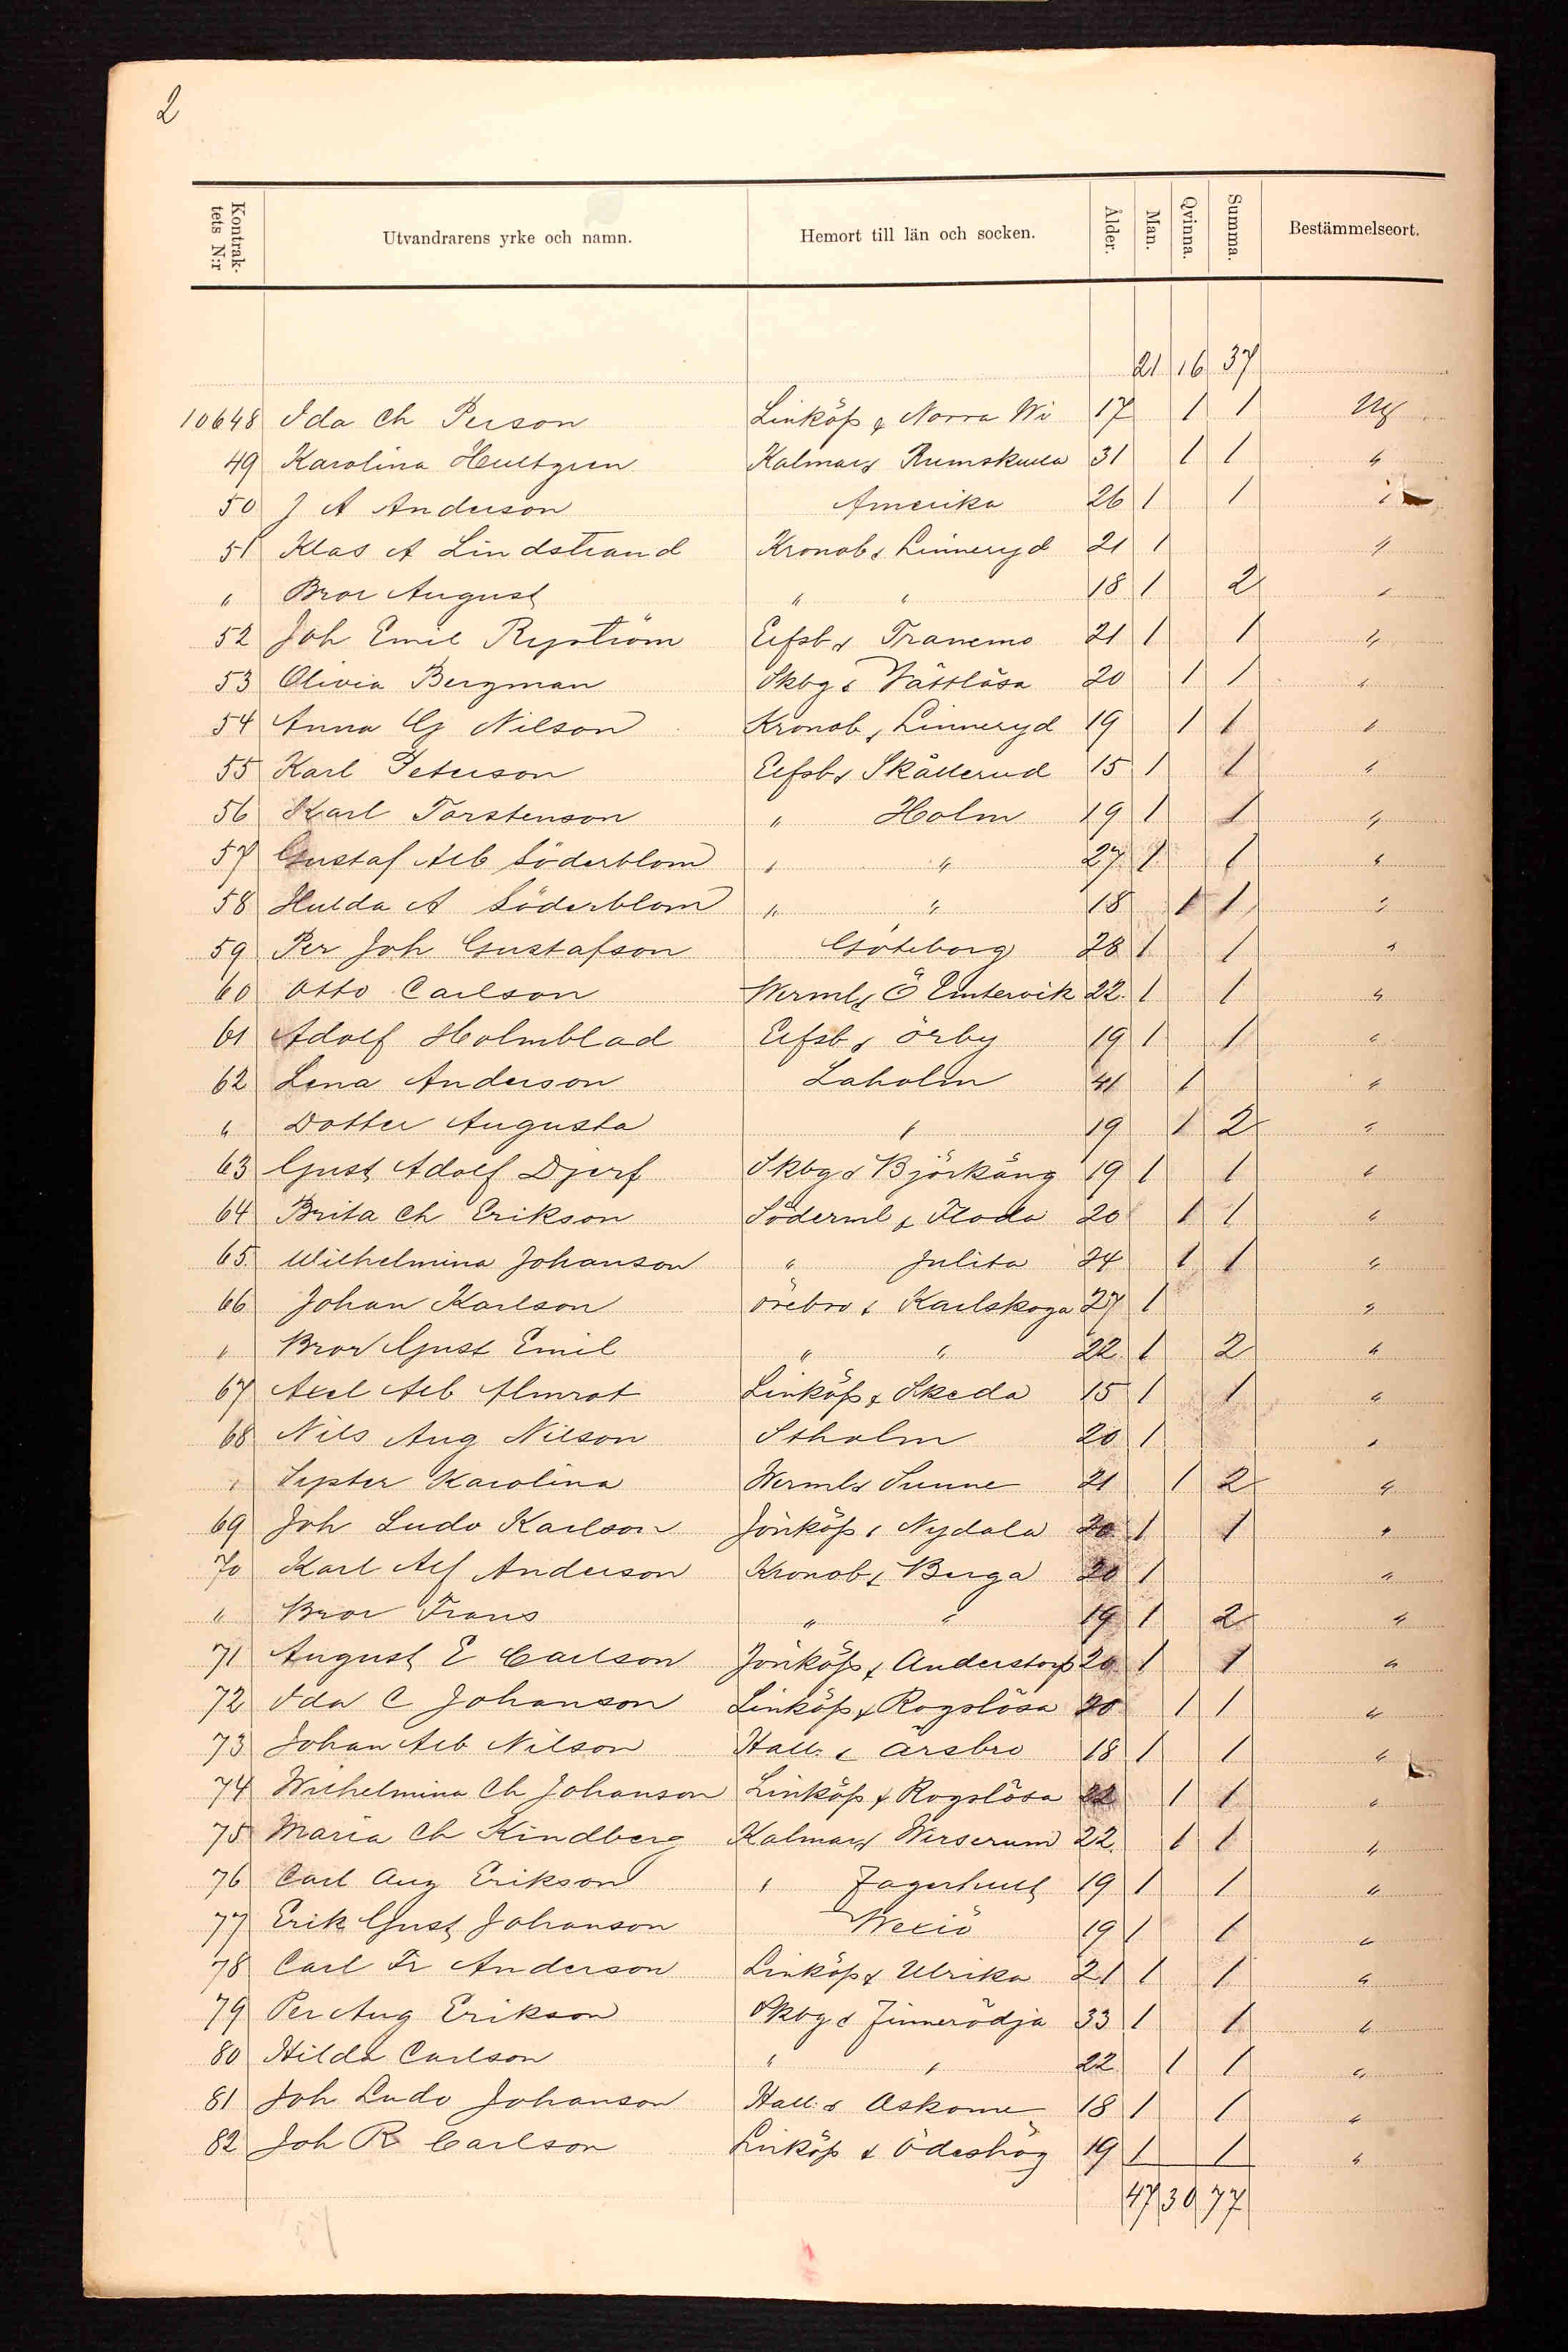 2
Kontraktets N:r Utvandrarens yrke och namn. Hemort till län och socken. Ålder. Man. Qvinna. Summa. Bestämmelseort.
21 16 37
10648 Ida Ch Person Linköp & Norra Wi 17 1 1 NY
49 Karolina Hultgren Kalmar & Rumskulla 31 1 1 "
50 J A Anderson Amerika 26 1 1 "
51 Klas A Lindstrand Kronob & Linneryd 21 1 "
" Bror August " " 18 1 2 "
52 Joh Emil Ryström Elfsb & Tranemo 21 1 1 "
53 Olivia Bergman Skbg & Vättlösa 20 1 1 "
54 Anna G Nilson Kronob & Linneryd 19 1 1 "
55 Karl Peterson Elfsb & Skållerud 15 1 1 "
56 Karl Torstenson " Holm 19 1 1 "
57 Gustaf Alb Söderblom " " 27 1 1 "
58 Hulda A Söderblom " " 18 1 1 "
59 Per Joh Gustafson Göteborg 28 1 1 "
60 Otto Carlson Wermld & Ö Emtervik 22 1 1 "
61 Adolf Holmblad Elfsb & Örby 19 1 1 "
62 Lena Anderson Laholm 41 1 "
" Dotter Augusta " 19 1 2 "
63 Gust Adolf Djerf Skbg & Björkäng 19 1 1 "
64 Brita Ch Erikson Söderml & Floda 20 1 1 "
65 Wilhelmina Johanson " Julita 24 1 1 "
66 Johan Karlson Örebro & Karlskoga 27 1 "
" Bror Gust Emil " " 22 1 2 "
67 Axel Alb Almrot Linköp & Skeda 15 1 1 "
68 Nils Aug Nilson Stholm 20 1 "
" Syster Karolina Wermld & Sunne 21 1 2 "
69 Joh Ludv Karlson Jönköp & Nydala 20 1 1 "
70 Karl Alf Anderson Kronob & Berga 20 1 "
" Bror Frans " " 19 1 2 "
71 August E Carlson Jönköp & Anderstorp 20 1 1 "
72 Ida C Johanson Linköp & Rogslösa 20 1 1 "
73 Johan Alb Nilson Hall: & Årsbro 18 1 1 "
74 Wilhelmina Ch Johanson Linköp & Rogslösa 22 1 1 "
75 Maria Ch Kindberg Kalmar & Wirserum 22 1 1 "
76 Carl Aug Erikson " Fagerhult 19 1 1 "
77 Erik Gust Johanson Wexiö 19 1 1 "
78 Carl Fr Anderson Linköp & Ulrika 21 1 1 "
79 Per Aug Erikson Skbg & Finnerödja 33 1 1 "
80 Hilda Carlson " " 22 1 1 "
81 Joh Ludv Johanson Hall: & Askome 18 1 1 "
82 Joh R Carlson Linköp & Ödeshög 19 1 1 "
47 30 77